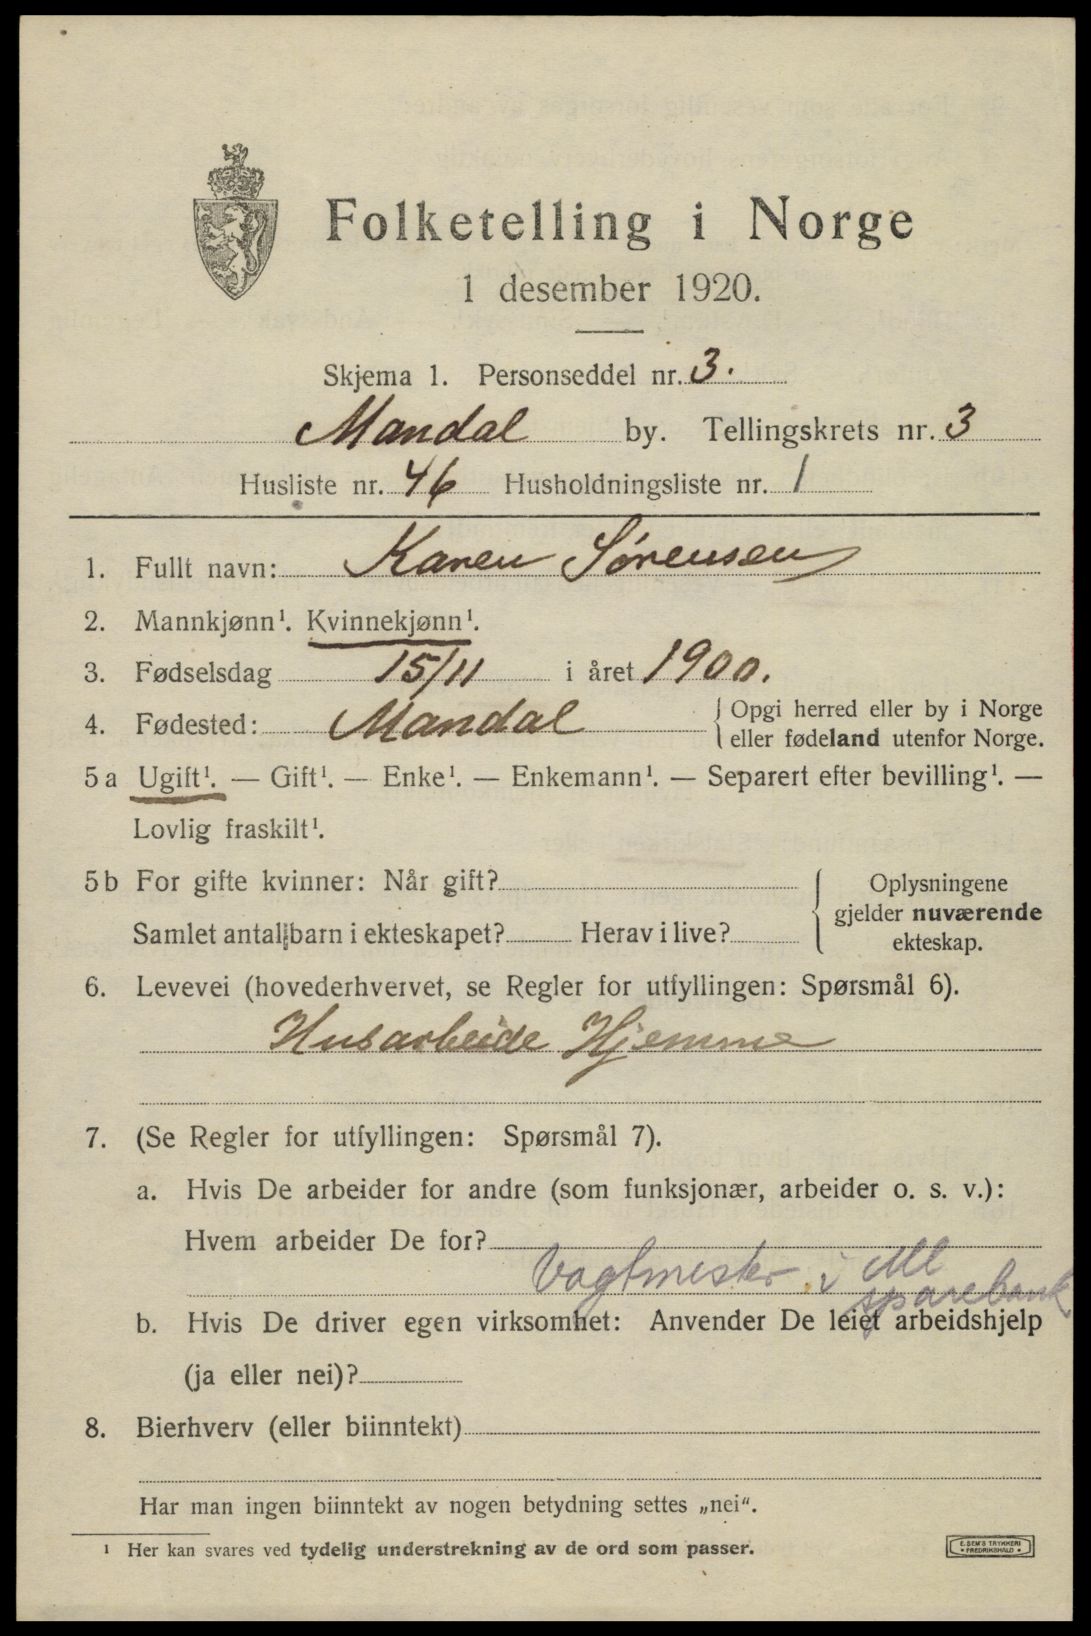 Folketelling i Norge
1 desember 1920.
Skjema 1. Personseddel nr. 3.
Mandal by. Tellingskrets nr. 3
Husliste nr. 46 Husholdningsliste nr. 1
1. Fullt navn: Karen Sørensen
2. Mannkjønn¹. Kvinnekjønn¹.
3. Fødselsdag 15/11 i året 1900.
4. Fødested: Mandal { Opgi herred eller by i Norge
eller fødeland utenfor Norge.
5a Ugift¹. — Gift¹. — Enke¹. — Enkemann¹. — Separert efter bevilling¹. —
Lovlig fraskilt¹.
5b For gifte kvinner: Når gift?
Samlet antal barn i ekteskapet? Herav i live?
{ Oplysningene
gjelder nuværende
ekteskap.
6. Levevei (hovederhvervet, se Regler for utfyllingen: Spørsmål 6).
Husarbeide Hjemme
7. (Se Regler for utfyllingen: Spørsmål 7).
a. Hvis De arbeider for andre (som funksjonær, arbeider o. s. v.):
Hvem arbeider De for?
Vagtmester i Ml
sparebank
b. Hvis De driver egen virksomhet: Anvender De leiet arbeidshjelp
(ja eller nei)?
8. Bierhverv (eller biinntekt)
Har man ingen biinntekt av nogen betydning settes „nei".
¹ Her kan svares ved tydelig understrekning av de ord som passer.
E. SEM'S TRYKKERI
• FREDRIKSHALD •